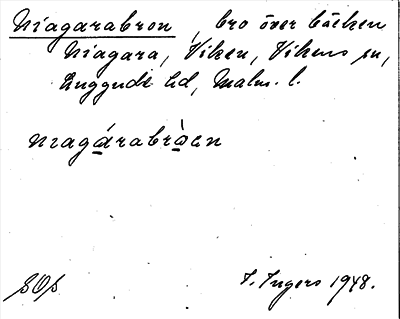 Niagarabron, bro över bäcken
Niagara, Viken, Vikens sn,
Luggude hd, Malm. l.
niagárabròen
I. Ingers 1948.